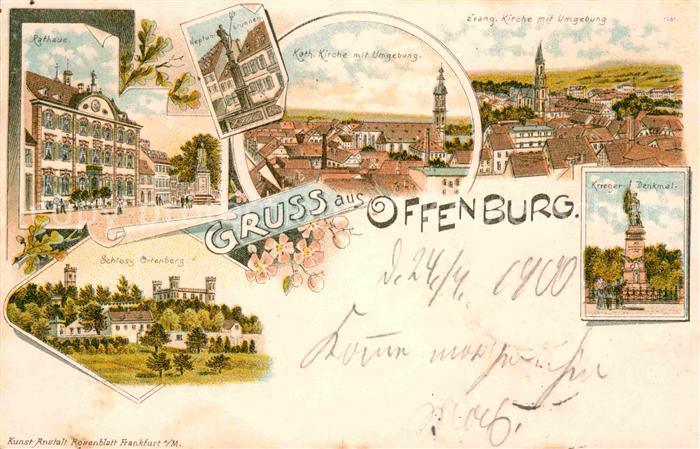 Rathaus.
Neptun-
brunnen.
Kath. Kirche mit Umgebung.
Evang. Kirche mit Umgebung
GRUSS aus OFFENBURG.
Krieger-Denkmal.
Schloss Ortenberg.
d. 24/4 1900
Komme
Kunst Anstalt Rosenblatt Frankfurt a/M.